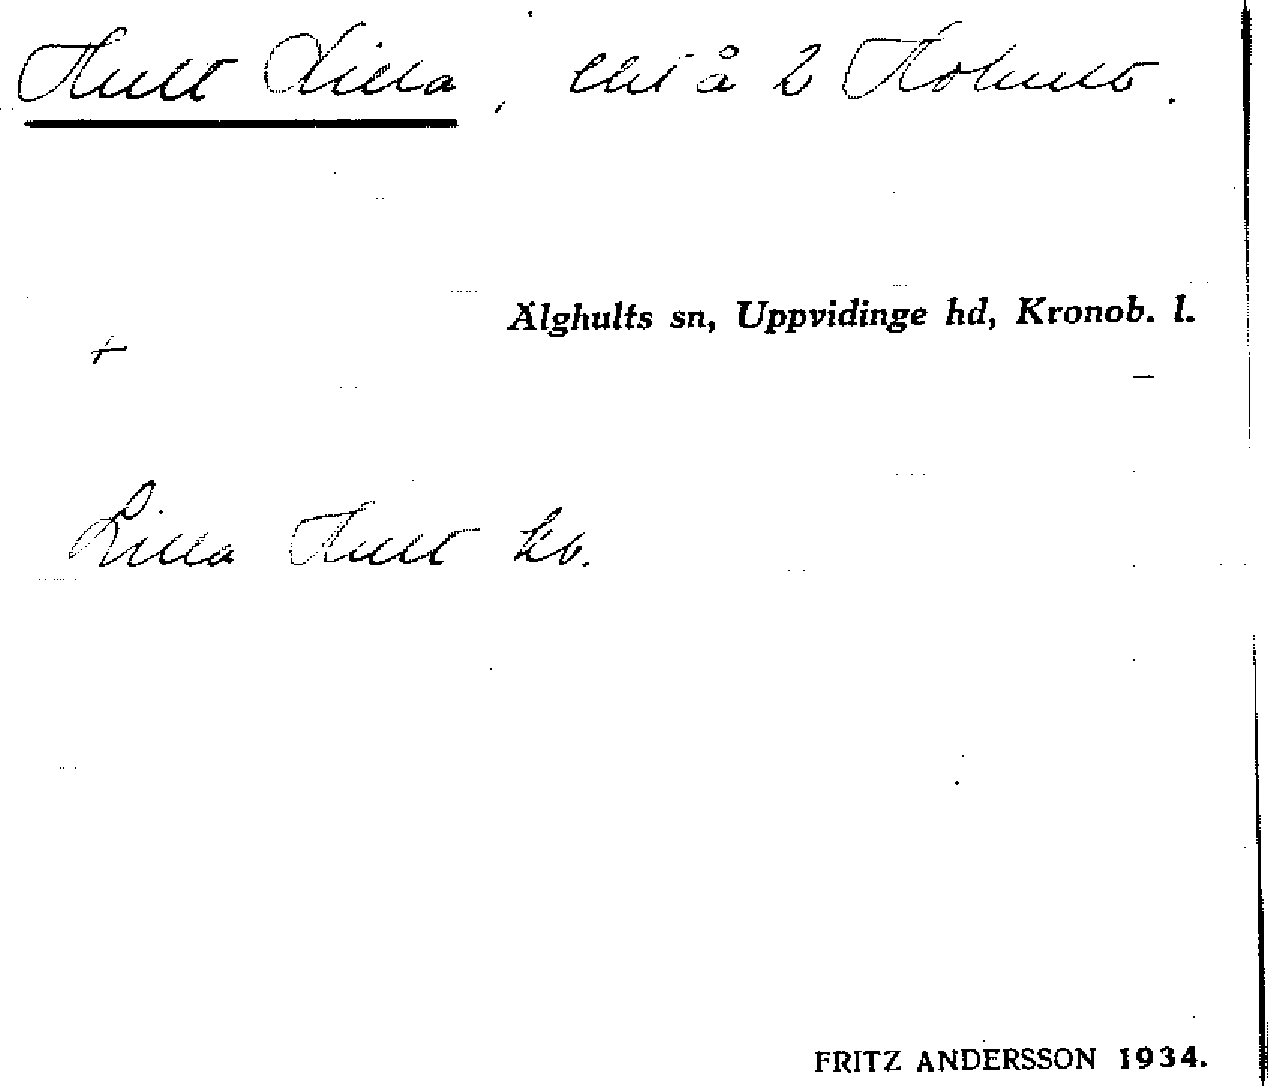 Hult Lilla, lht å 2 Hohult.
Älghults sn, Uppvidinge hd, Kronob. l.
+
Lilla Hult
FRITZ ANDERSSON 1934.